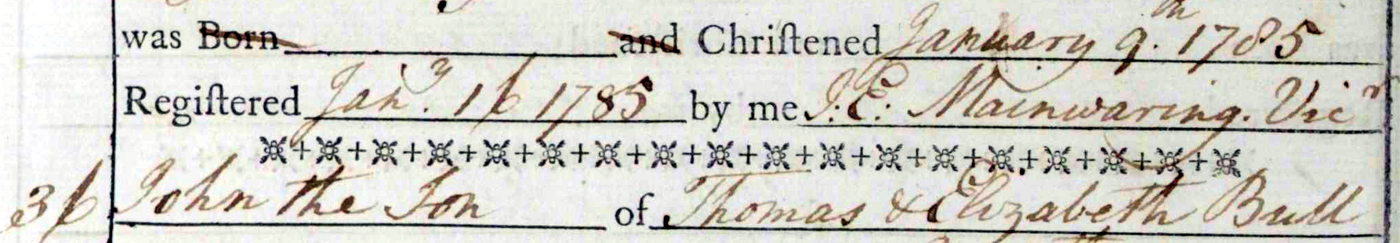 was Born and Chriſtened January 9.th 1785
Regiſtered Jan.y 16 1785 by me J. E. Mainwaring. Vicr
36 John the Son of Thomas & Elizabeth Bull